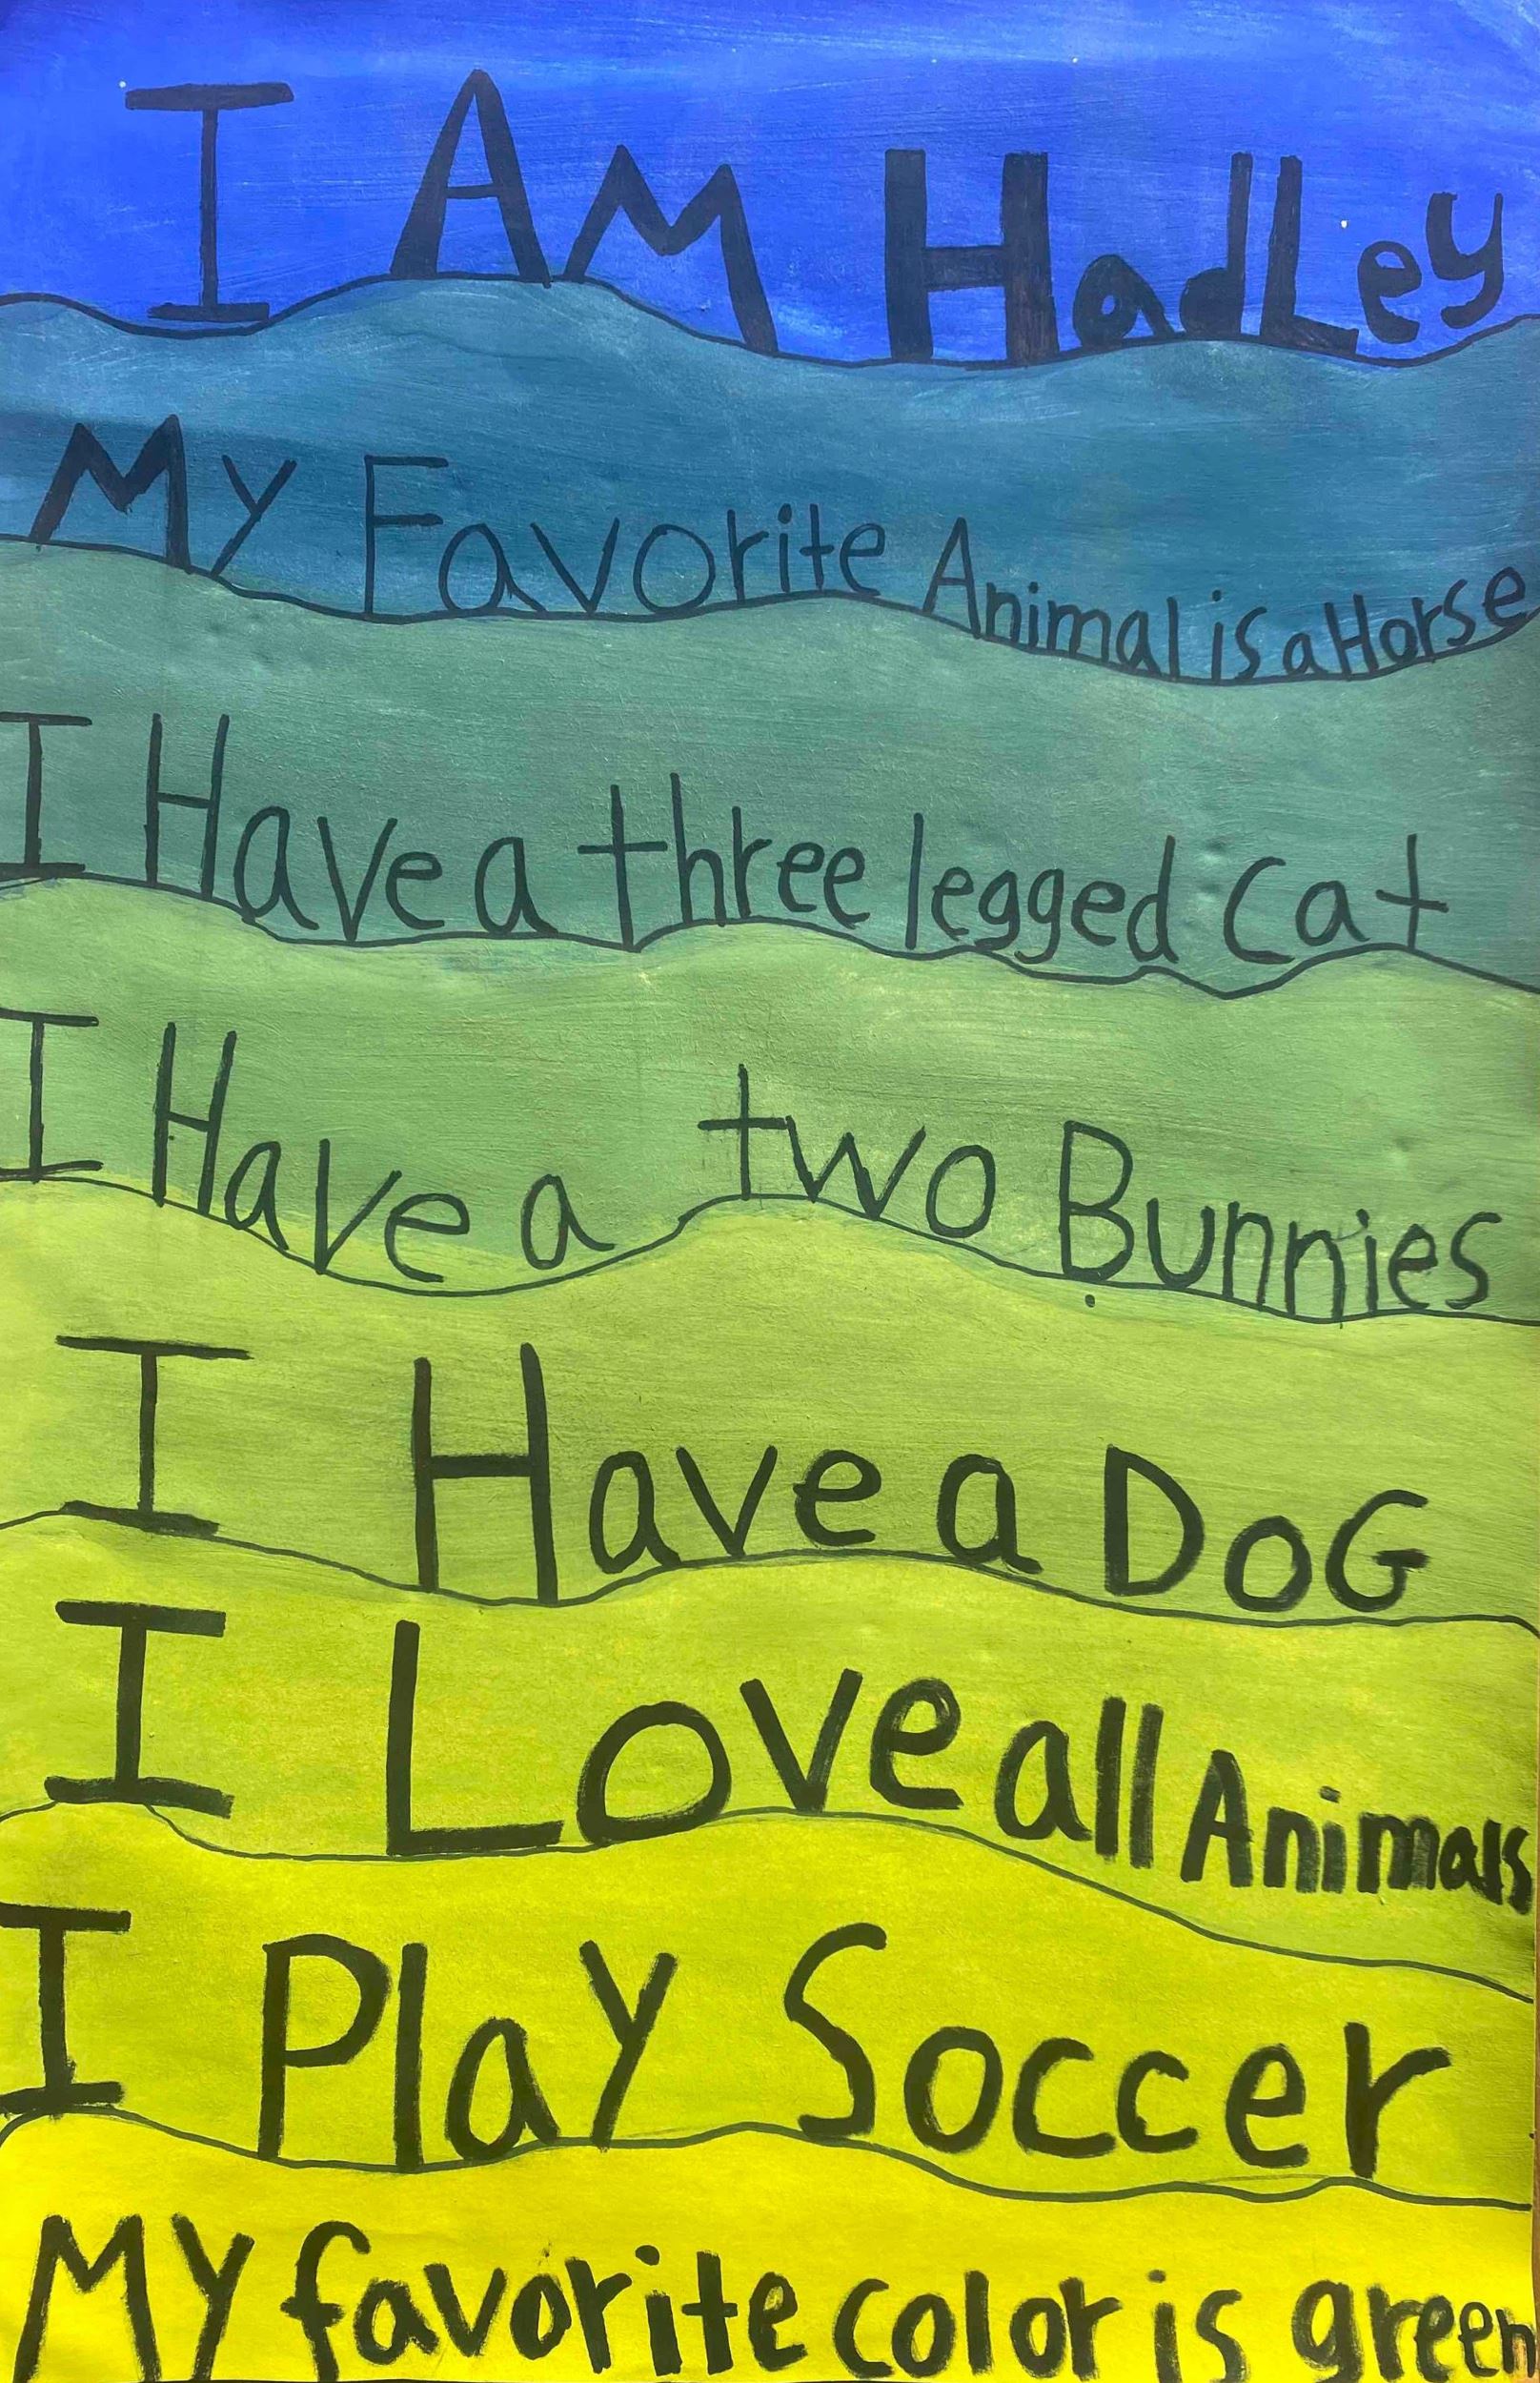 I AM HadLey
My Favorite Animal is a Horse
I Have a three legged cat
I Have a two Bunnies
I Have a DoG
I Love all Animals
I Play Soccer
My favorite color is green